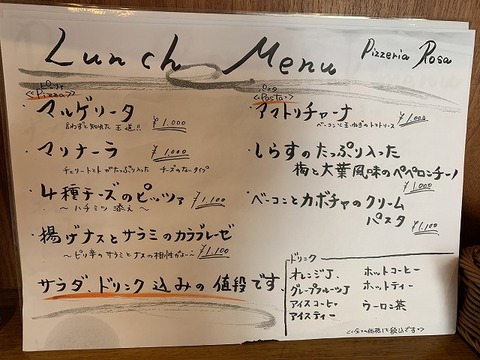 Lunch Menu
Pizzeria Rosa
ピッツァ
<<Pizza>>
・マルゲリータ
言わずと知れた王道!! ¥1,000
・マリナーラ
チェリートマトがたっぷり入った チーズのないタイプ ¥1,000
・4種チーズのピッツァ
〜ハチミツ添え〜 ¥1,100
・揚げナスとサラミのカラブレーゼ
〜ピリ辛のサラミとナスの相性が 〜 ¥1,100
パスタ
<<Pasta>>
・アマトリチャーナ
ベーコンと玉ねぎのトマトソース ¥1,000
・しらすのたっぷり入った
梅と大葉風味のペペロンチーノ
¥1,000
・ベーコンとカボチャのクリーム
パスタ ¥1,100
サラダ、ドリンク込みの値段です。
ドリンク
オレンジJ.
グレープフルーツJ
アイスコーヒー
アイスティー
ホットコーヒー
ホットティー
ウーロン茶